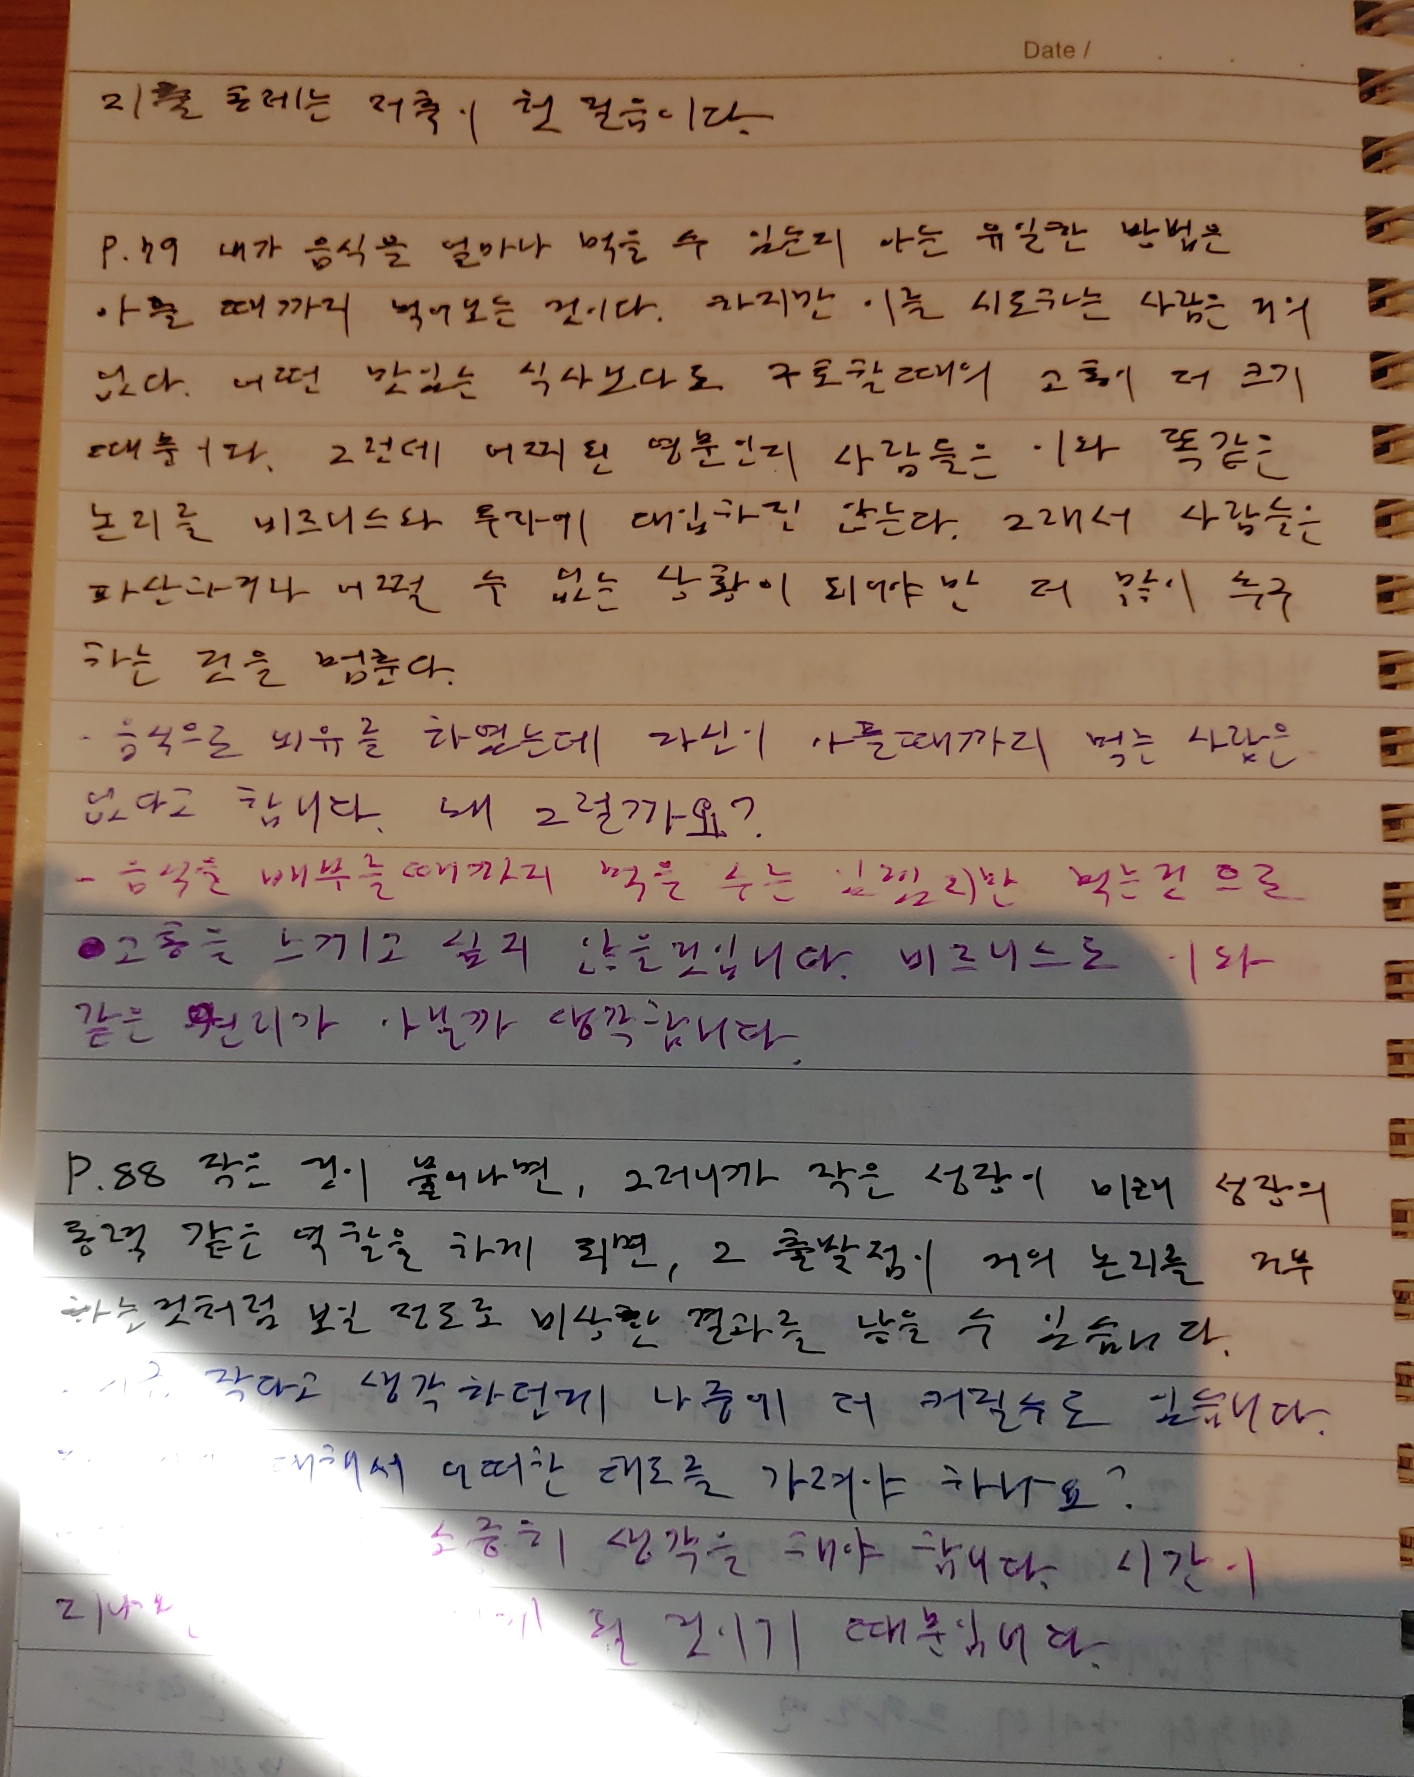 Date /
저축이 첫 걸음이다.
P.79 내가 음식을 얼마나 먹을 수 있는지 아는 유일한 방법은
아플 때까지 먹어보는 것이다. 하지만 이를 시도하는 사람은 거의
없다. 어떤 맛있는 식사보다도 구토할때의 고통이 더 크기
때문이다. 그런데 어찌된 영문인지 사람들은 이와 똑같은
논리를 비즈니스와 투자에 대입하진 않는다. 그래서 사람들은
파산하거나 어쩔 수 없는 상황이 되어야만 더 많이 추구
하는 것을 멈춘다.
- 음식으로 비유를 하였는데 자신이 아플때까지 먹는 사람은
없다고 합니다. 왜 그럴까요?
- 음식을 배부를때까지 먹을 수는 있겠지만 먹는것으로
고통을 느끼고 싶지 않을것입니다. 비즈니스도 이와
같은 원리가 아닐까 생각합니다.
P.88 작은 것이 불어나면, 그러니까 작은 성장이 미래 성장의
동력 같은 역할을 하게 되면, 그 출발점이 거의 논리를 거부
하는것처럼 보일 정도로 비상한 결과를 낳을 수 있습니다.
작다고 생각하던게 나중에 더 커질수도 있습니다.
대해서 어떠한 태도를 가져야 하나요?
소중히 생각을 해야 합니다. 시간이
될 것이기 때문입니다.